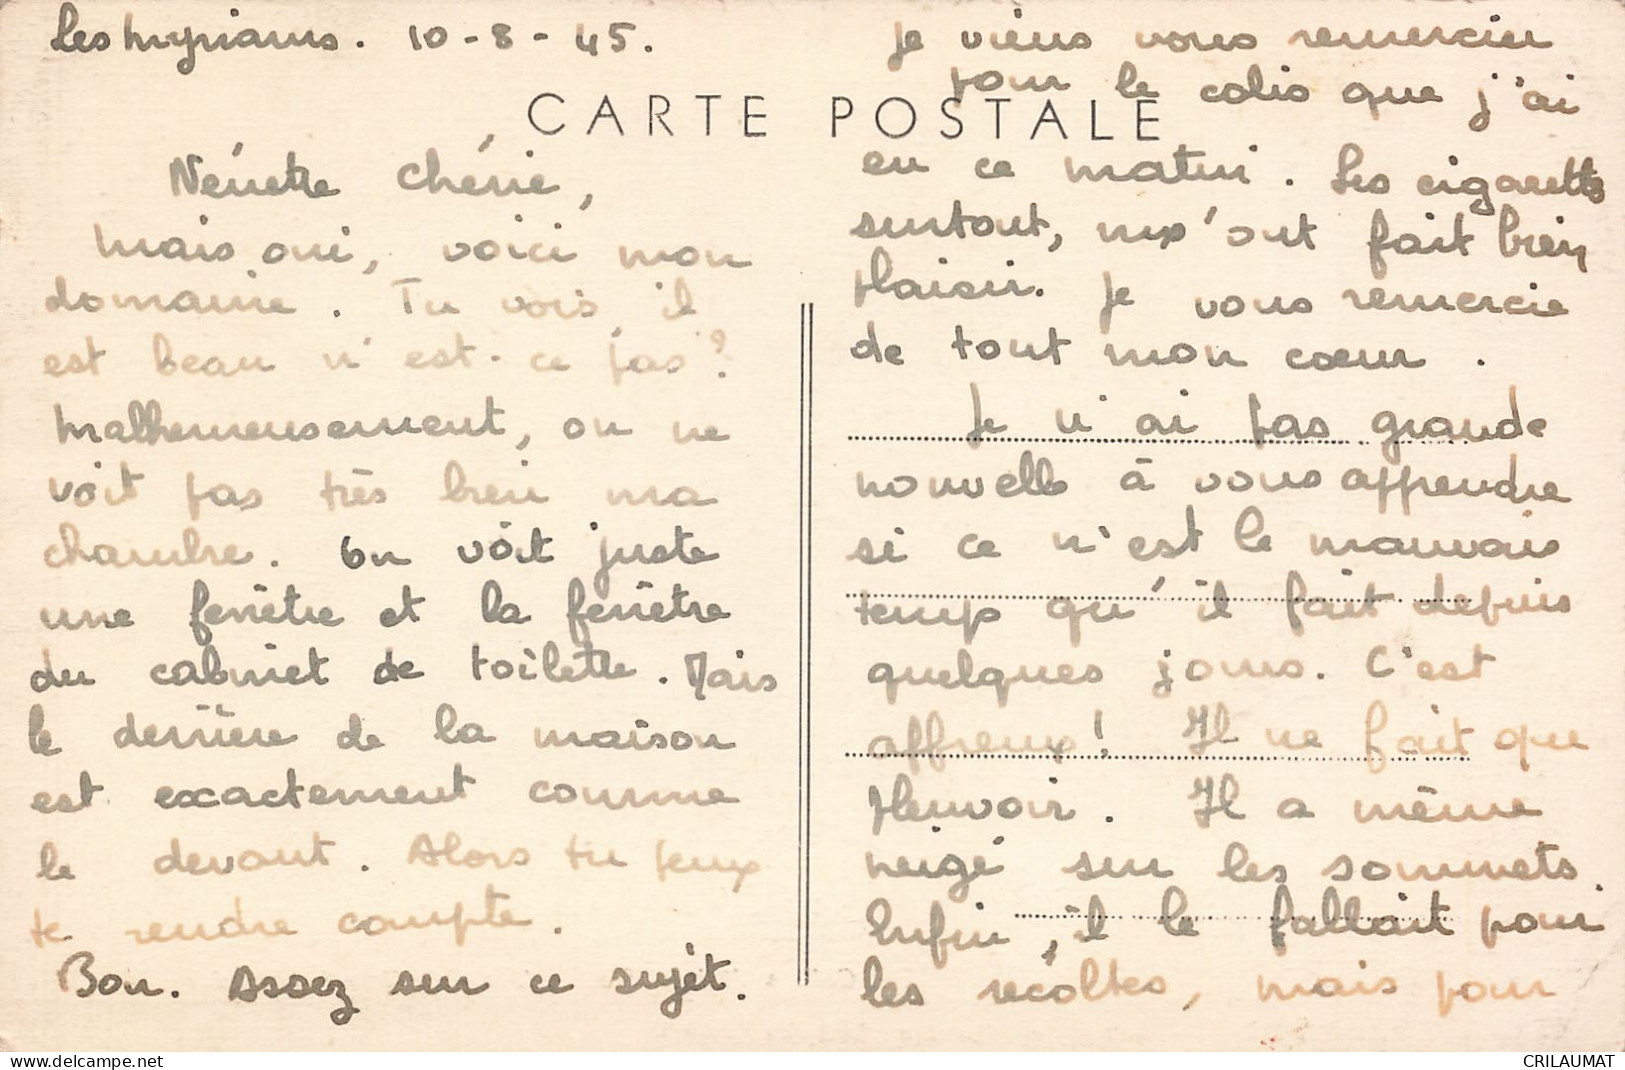 Les Myriams. 10-8-45.
CARTE POSTALE
Nénette chérie,
Mais oui, voici mon
domaine. Tu vois, il
est beau n'est-ce pas?
Malheureusement, on ne
voit pas très bien ma
chambre. On voit juste
une fenêtre et la fenêtre
du cabinet de toilette. Mais
le derrière de la maison
est exactement comme
le devant. Alors tu peux
te rendre compte.
Bon. Assez sur ce sujet.
Je viens vous remercier
pour le colis que j'ai
eu ce matin. Les cigarettes
surtout, m'ont fait bien
plaisir. Je vous remercie
de tout mon coeur.
Je n'ai pas grande
nouvelle à vous apprendre
si ce n'est le mauvais
temps qu'il fait depuis
quelques jours. C'est
affreux! Il ne fait que
pleuvoir. Il a même
neigé sur les sommets.
Enfin, il le fallait pour
les récoltes, mais pour
delcampe.net
CRILAUMAT